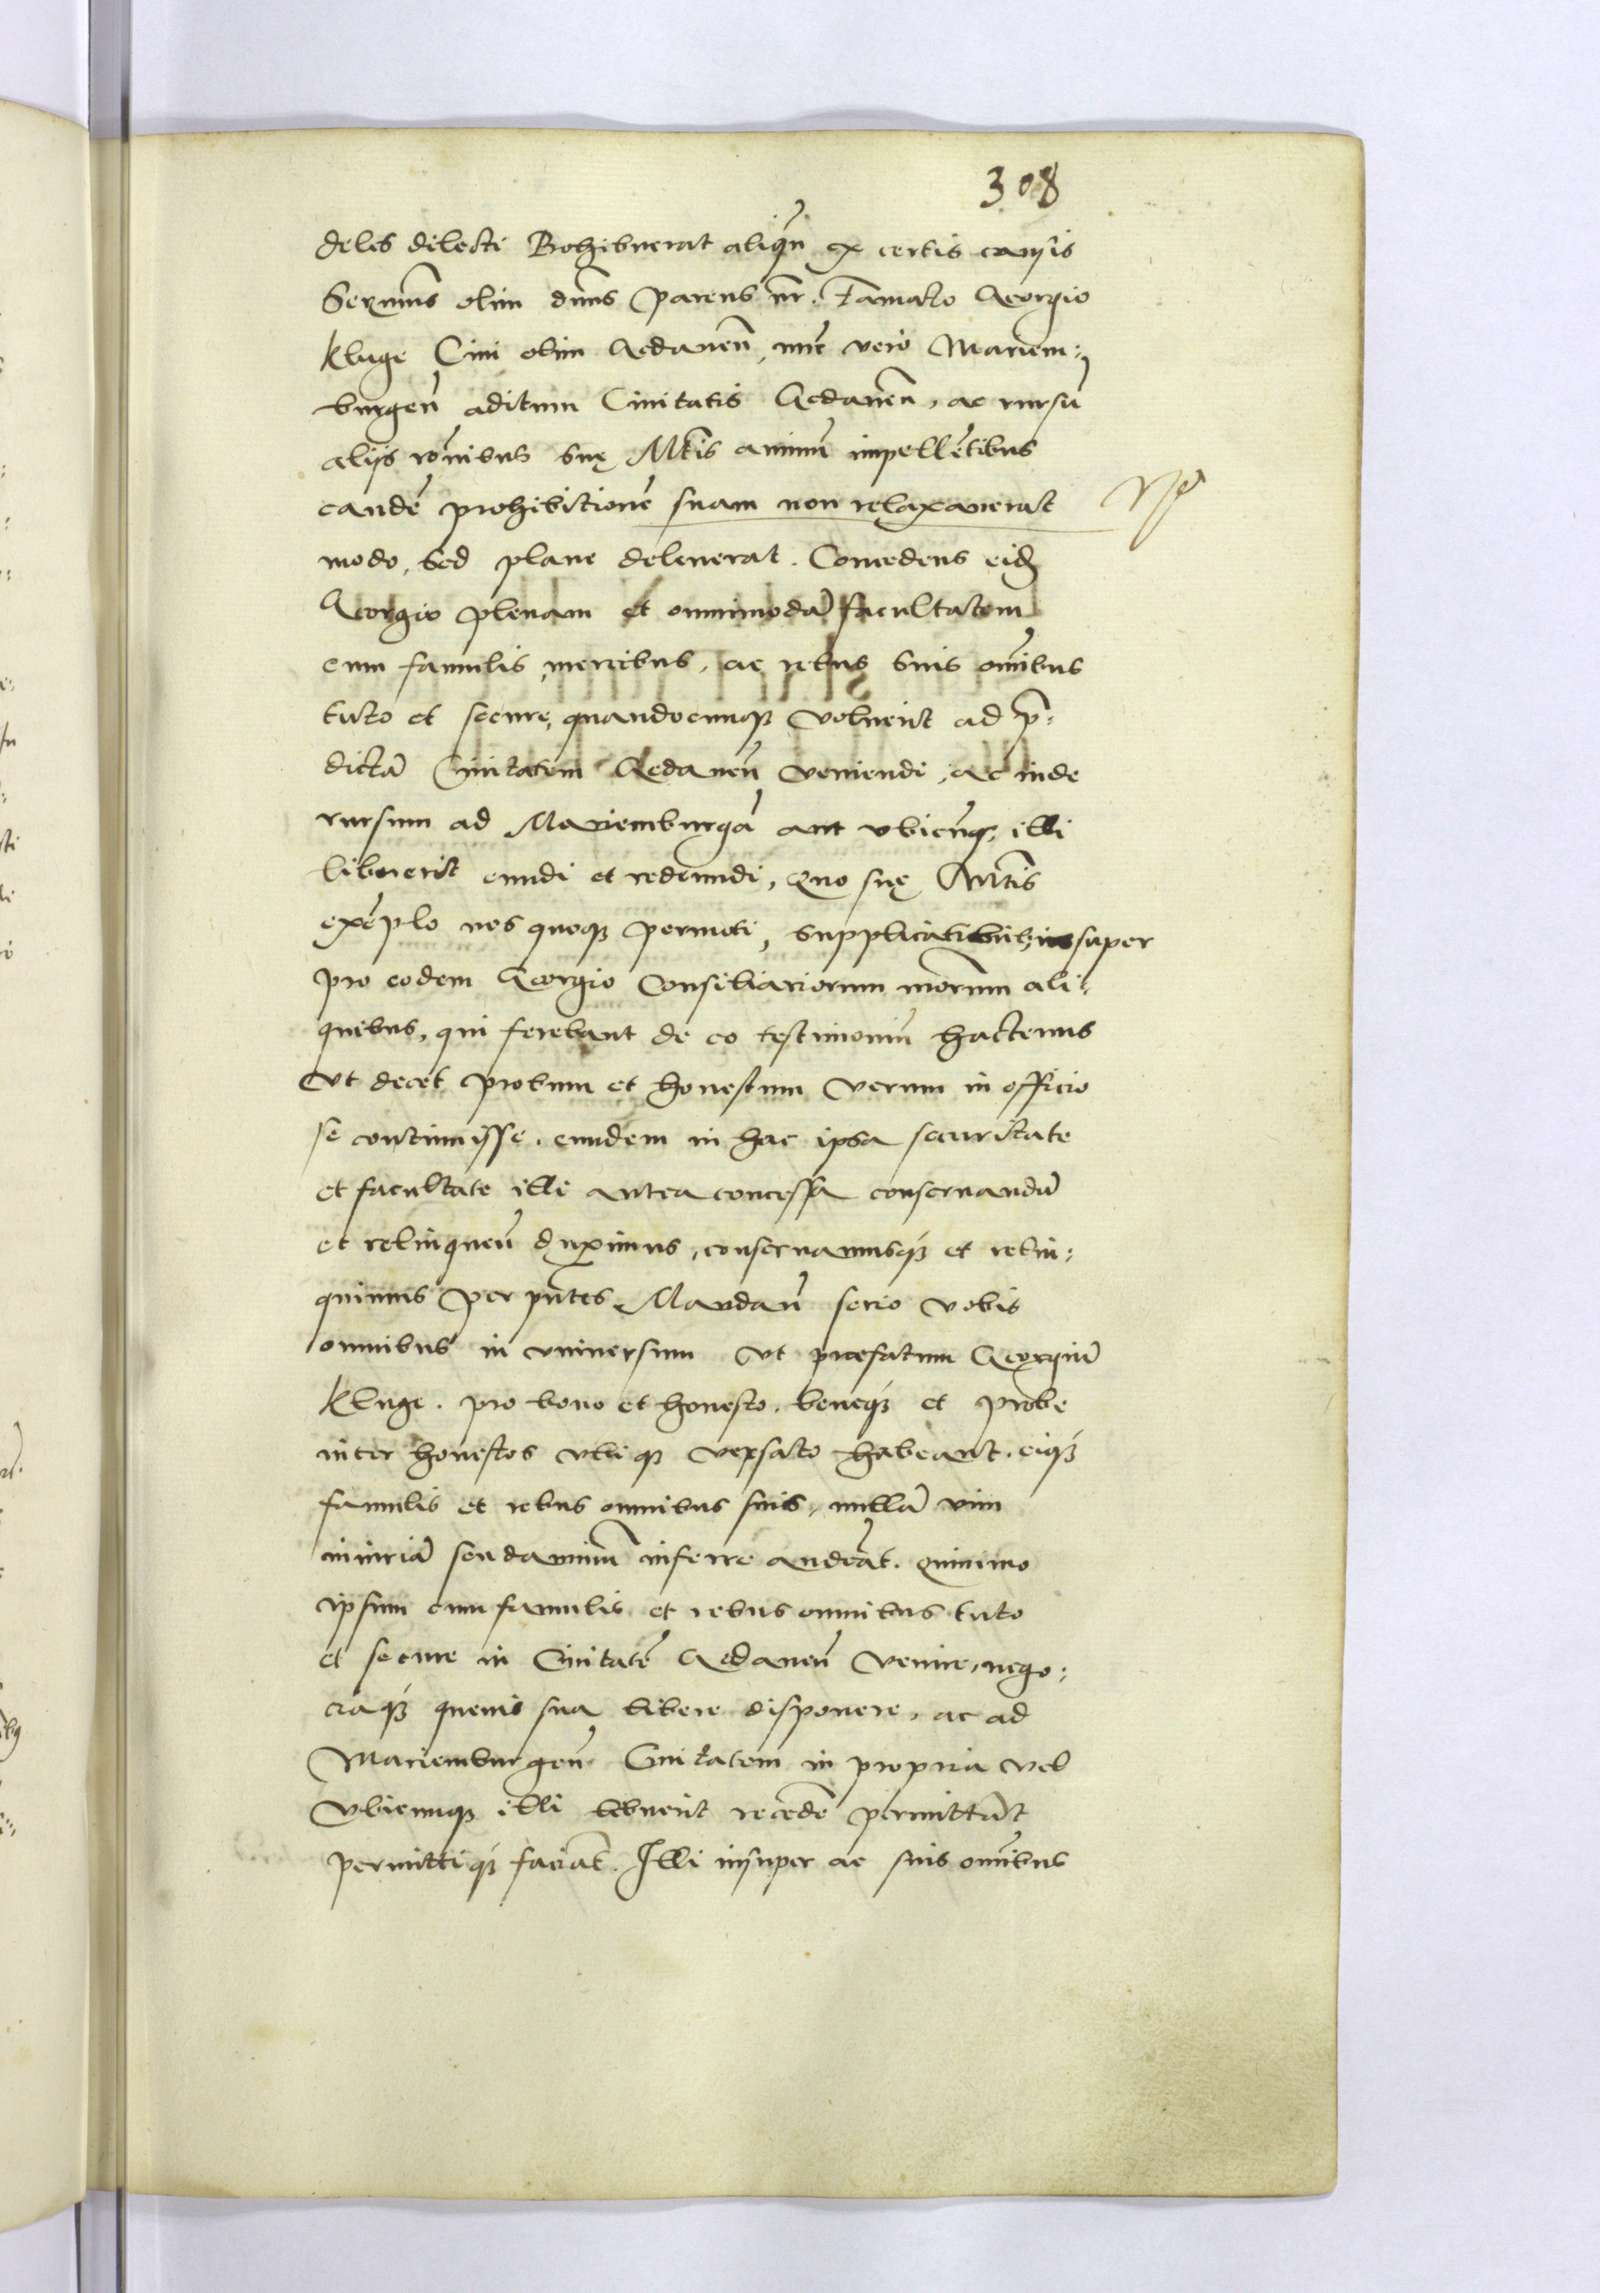 308
deles dilecti Prohibuerat aliqn̄ ex certis causis
Serm̄us olim dn̄us parens nr̄. Famato Georgio
Kluge Ciui olim Gedaneñ, nūc vero Mariem:
burgeñ aditum Ciuitatis Gedaneñ, ac rursū
alijs rōnibus suę Mt̄is animū impellētibus
eandē prohibitionē suam non relaxauerat
modo, sed plane deleuerat. Concedens eid
Georgio plenam et omnimodā facultatem
cum famulis, mercibus, ac rebus suis om̄ibus
tuto et secure, quandocunqȝ voluerit ad p̄:
dictā Ciuitatem Gedaneñ veniendi, ac inde
rursum ad Mariemburgā aut vbicūqȝ illi
libuerit eundi et redeundi, Quo suę Mt̄is
exēplo nos quoqȝ permoti, supplicātibus insuper
pro eodem Georgio Consiliariorum nrorum ali:
quibus, qui ferebant de eo testimoniū hactenus
Vt decet probum et honestum verum in officio
se continuisse, eundem in hac ipsa securitate
et facultate illi antea concessa conseruandū
et relinqueñ duximus, conseruamusqȝ et relin:
quimus per pn̄tes. Mandañ serio vobis
omnibus in vniuersum vt praefatum Georgiū
Kluge, pro bono et honesto, beneqȝ et probe
inter honestos vbiqȝ versato habeant, eiqȝ
famulis et rebus omnibus suis, nullā vim
iniuriā seu damnum inferre audeāt. Quinimo
ipsum cum famulis et rebus omnibus tuto
et secure in Ciuitatē Gedaneñ venire, nego:
ciaqȝ queuis sua libere disponere, ac ad
Mariemburgeñ Ciuitatem in propria vel
Vbicunqȝ illi libuerit recedē permittāt
permittiqȝ faciāt. Illi insuper ac suis om̄ibus